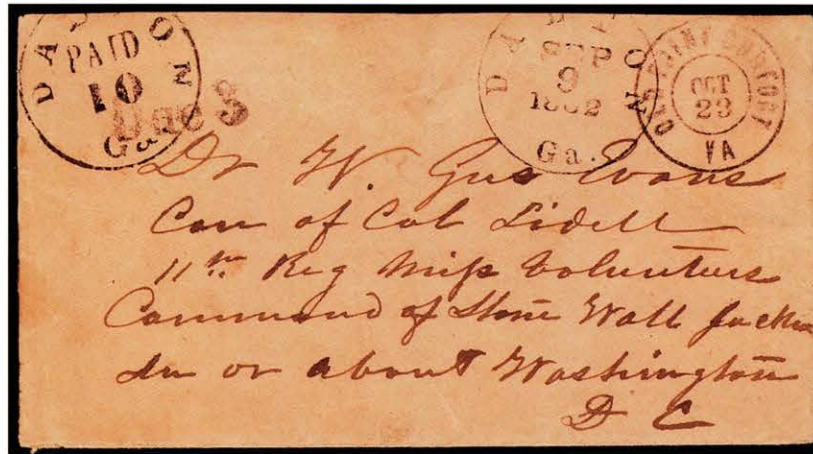 DALTON
PAID
10
Ga.
Due 3
DALTON
SEP
9
1862
Ga.
OLD POINT COMFORT
OCT
23
VA
Dr W. Gus Evans
Care of Col Lidell
11th Reg Miss Volunteers
Command of Stone Wall Jackson
In or about Washington
D C